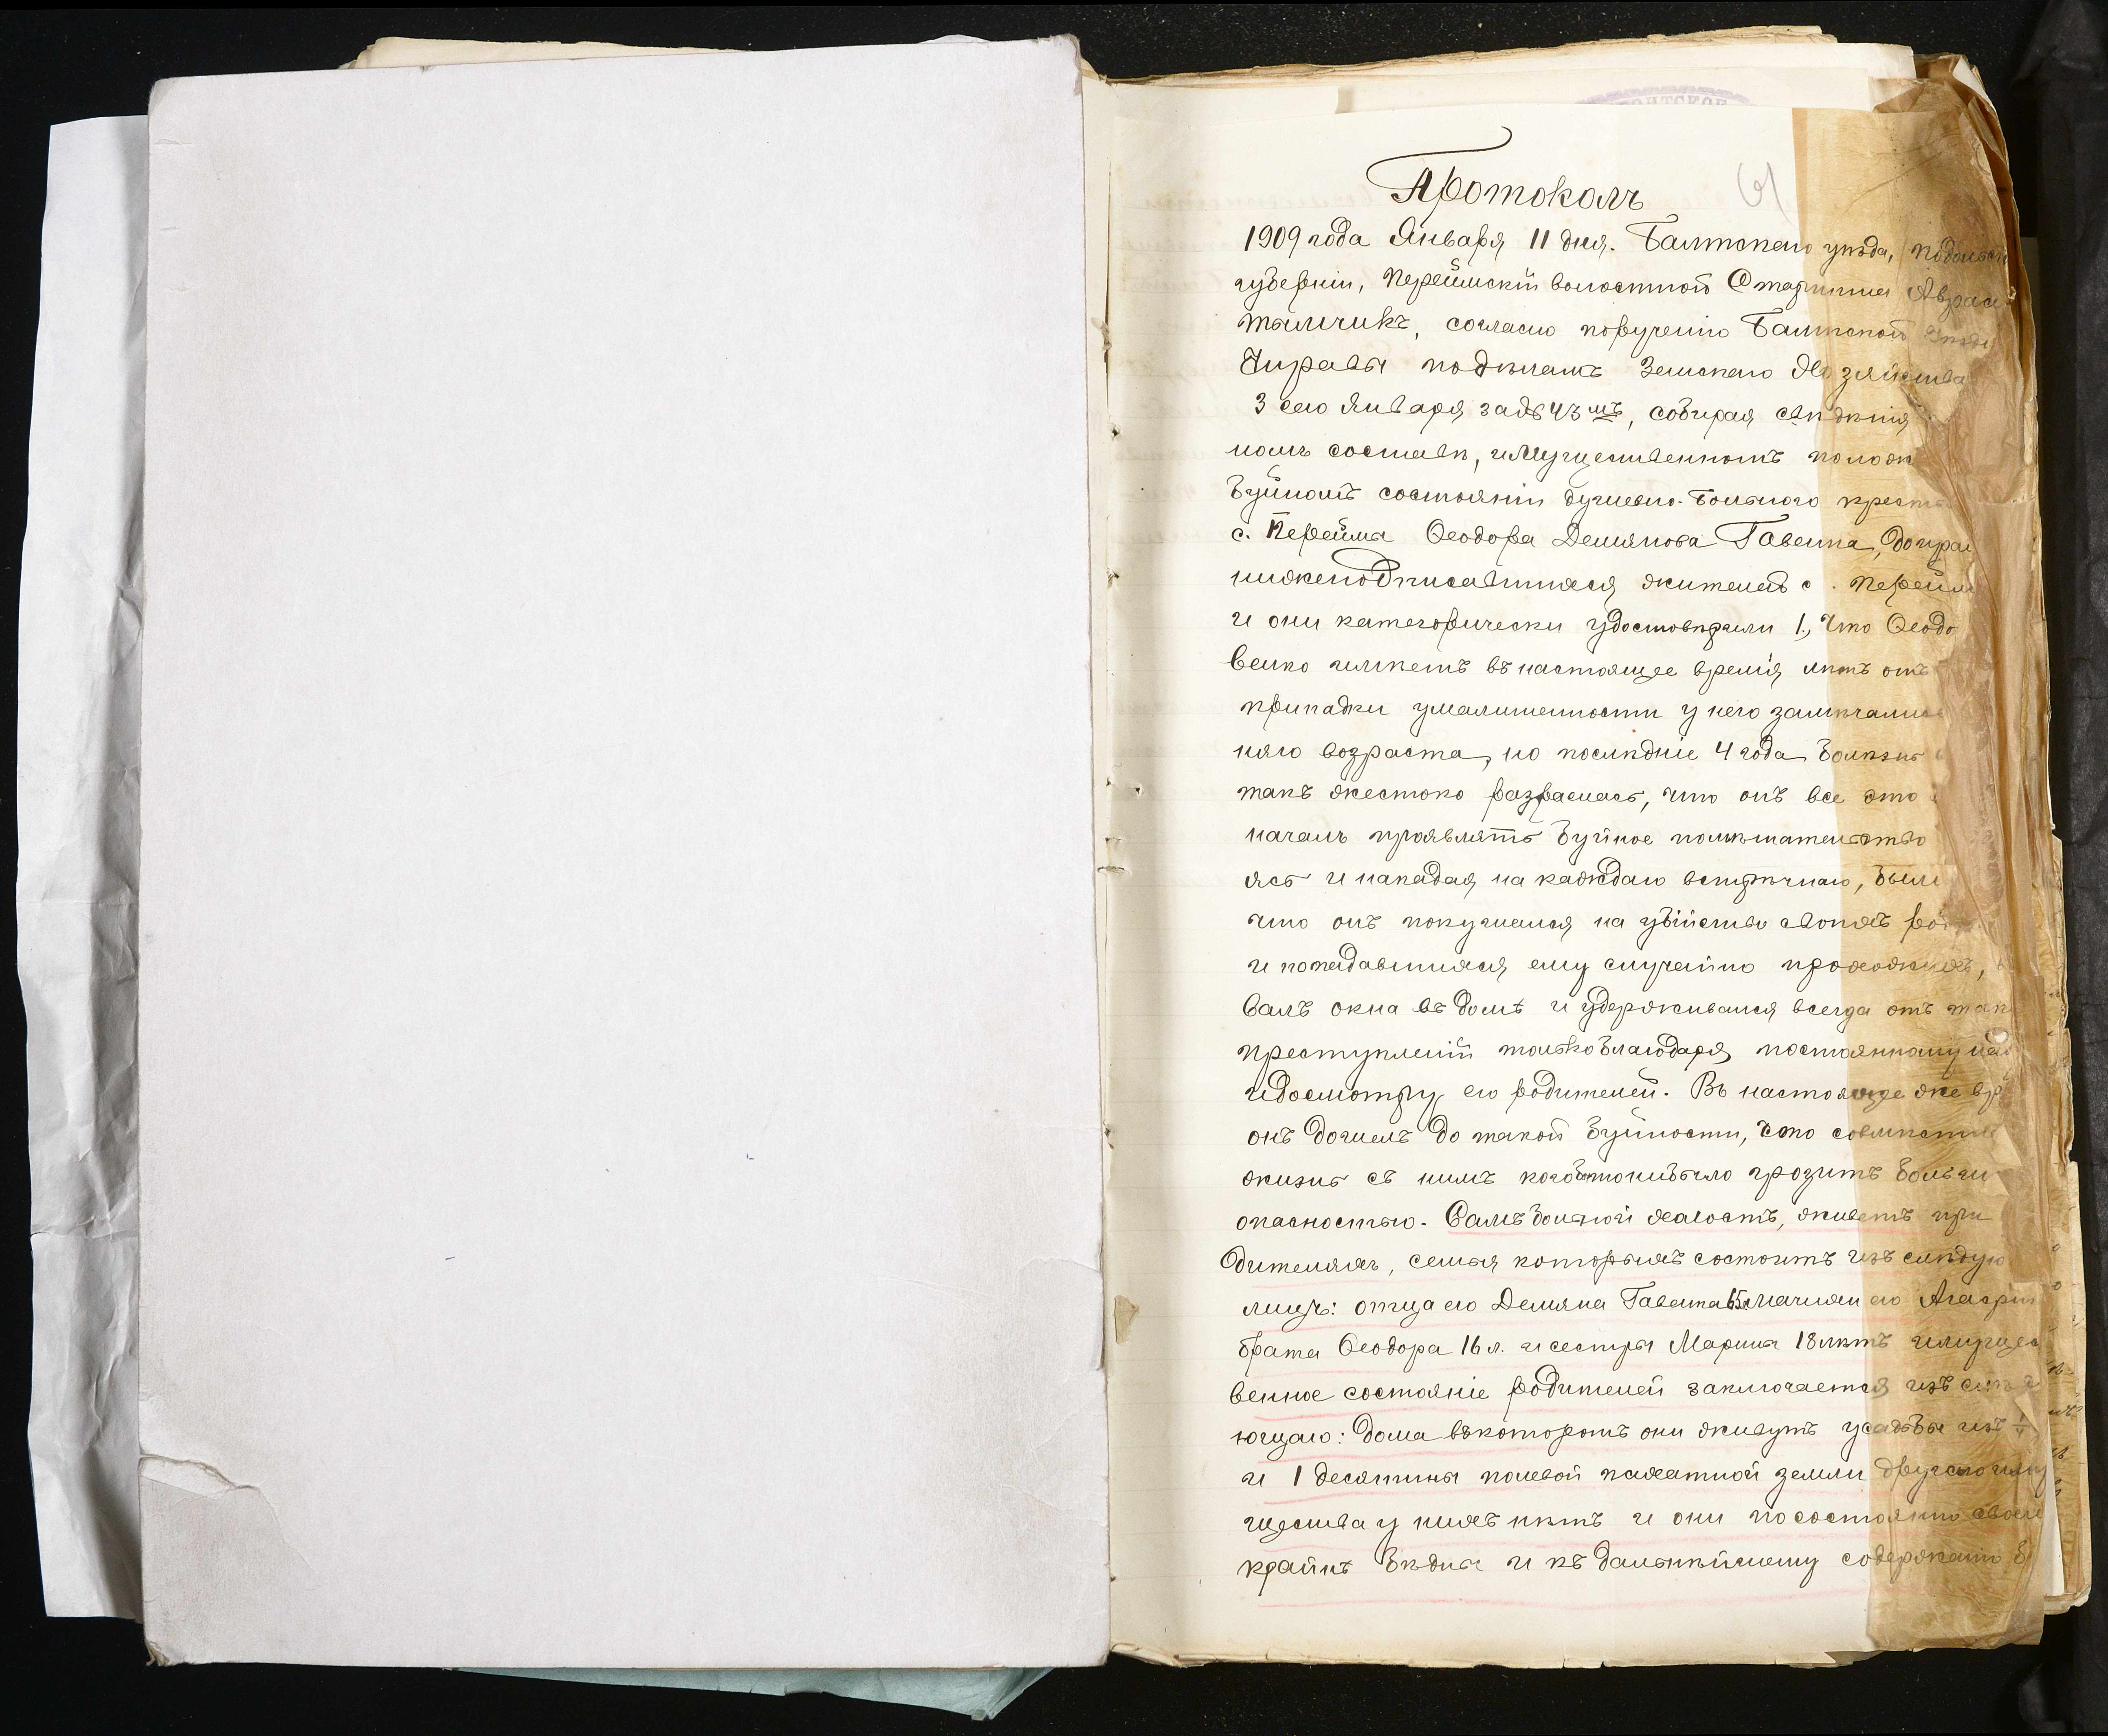 Протоколъ
1909 года Января 11 дня. Балтскаго уѣзда, Подольск
губерніи, Переймскій волостной Старшина Аврам
согласно порученію Балтской Уѣздн
Управы по дѣламъ Земскаго Хозяйства
3 сего Января за № 43мъ, собирая свѣдѣнія
номъ составѣ, имущественномъ полож
буйномъ состояніи душевно-больного крест
с. Перейма Ѳеодора Демянова Говенка, допра
нижеподписавшихся жителей с. Перейм
и они категорически удостовѣрили 1, Что Ѳеодо
венко имѣетъ въ настоящее время лѣтъ отъ
припадки умалишенности у него замѣчались
няго возраста, но послѣдніе 4 года болѣзнь
такъ жестоко разраслась, что онъ все это
началъ проявлять буйное помѣшательство
ясь и нападая на каждаго встрѣчнаго, были
что онъ покушался на убійство своихъ ро
и попадавшихся ему случайно прохожихъ,
валъ окна въ домѣ и удерживался всегда отъ так
преступленій только благодаря постоянному над
и досмотру его родителей. Въ настояще же вр
онъ дошелъ до такой буйности, что совмѣстн
жизнь съ нимъ кого бы то ни было грозитъ больш
опасностью. Самъ больной холостъ, живетъ при
дителяхъ, семья которыхъ состоитъ изъ слѣдую
лицъ: отца его Демяна Говенка 65л мачихи его Агафіи
брата Ѳеодора 16 л. и сестры Марины 18 лѣтъ имущест
венное состояніе родителей заключается изъ слѣд
ющаго: дома въ которомъ они живутъ усадьбы изъ
и 1 десятины полевой пахатной земли другого иму
щества у нихъ нѣтъ и они по состоянію своем
крайнѣ бѣдны и къ дальнѣйшему содержанію б